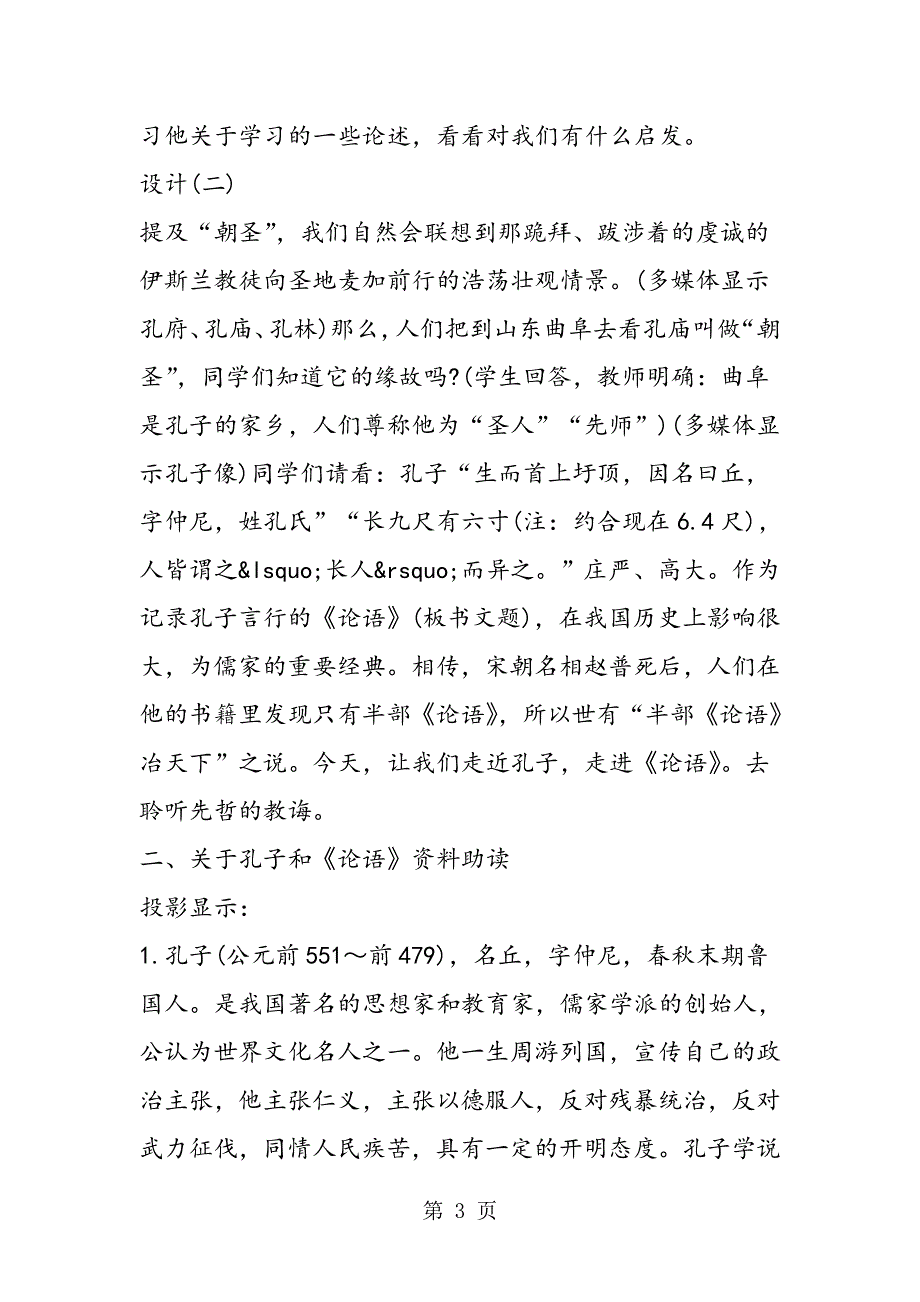 习他关于学习的一些论述，看看对我们有什么启发。
设计(二)
提及“朝圣”，我们自然会联想到那跪拜、跋涉着的虔诚的
伊斯兰教徒向圣地麦加前行的浩荡壮观情景。(多媒体显示
孔府、孔庙、孔林)那么，人们把到山东曲阜去看孔庙叫做“朝
圣”，同学们知道它的缘故吗?(学生回答，教师明确：曲阜
是孔子的家乡，人们尊称他为“圣人”“先师”)(多媒体显
示孔子像)同学们请看：孔子“生而首上圩顶，因名曰丘，
字仲尼，姓孔氏”“长九尺有六寸(注：约合现在6.4尺)，
人皆谓之&lsquo;长人&rsquo;而异之。”庄严、高大。作为
记录孔子言行的《论语》(板书文题)，在我国历史上影响很
大，为儒家的重要经典。相传，宋朝名相赵普死后，人们在
他的书籍里发现只有半部《论语》，所以世有“半部《论语》
冶天下”之说。今天，让我们走近孔子，走进《论语》。去
聆听先哲的教诲。
二、关于孔子和《论语》资料助读
投影显示：
1.孔子(公元前551～前479)，名丘，字仲尼，春秋末期鲁
国人。是我国著名的思想家和教育家，儒家学派的创始人，
公认为世界文化名人之一。他一生周游列国，宣传自己的政
治主张，他主张仁义，主张以德服人，反对残暴统治，反对
武力征伐，同情人民疾苦，具有一定的开明态度。孔子学说
第 3 页